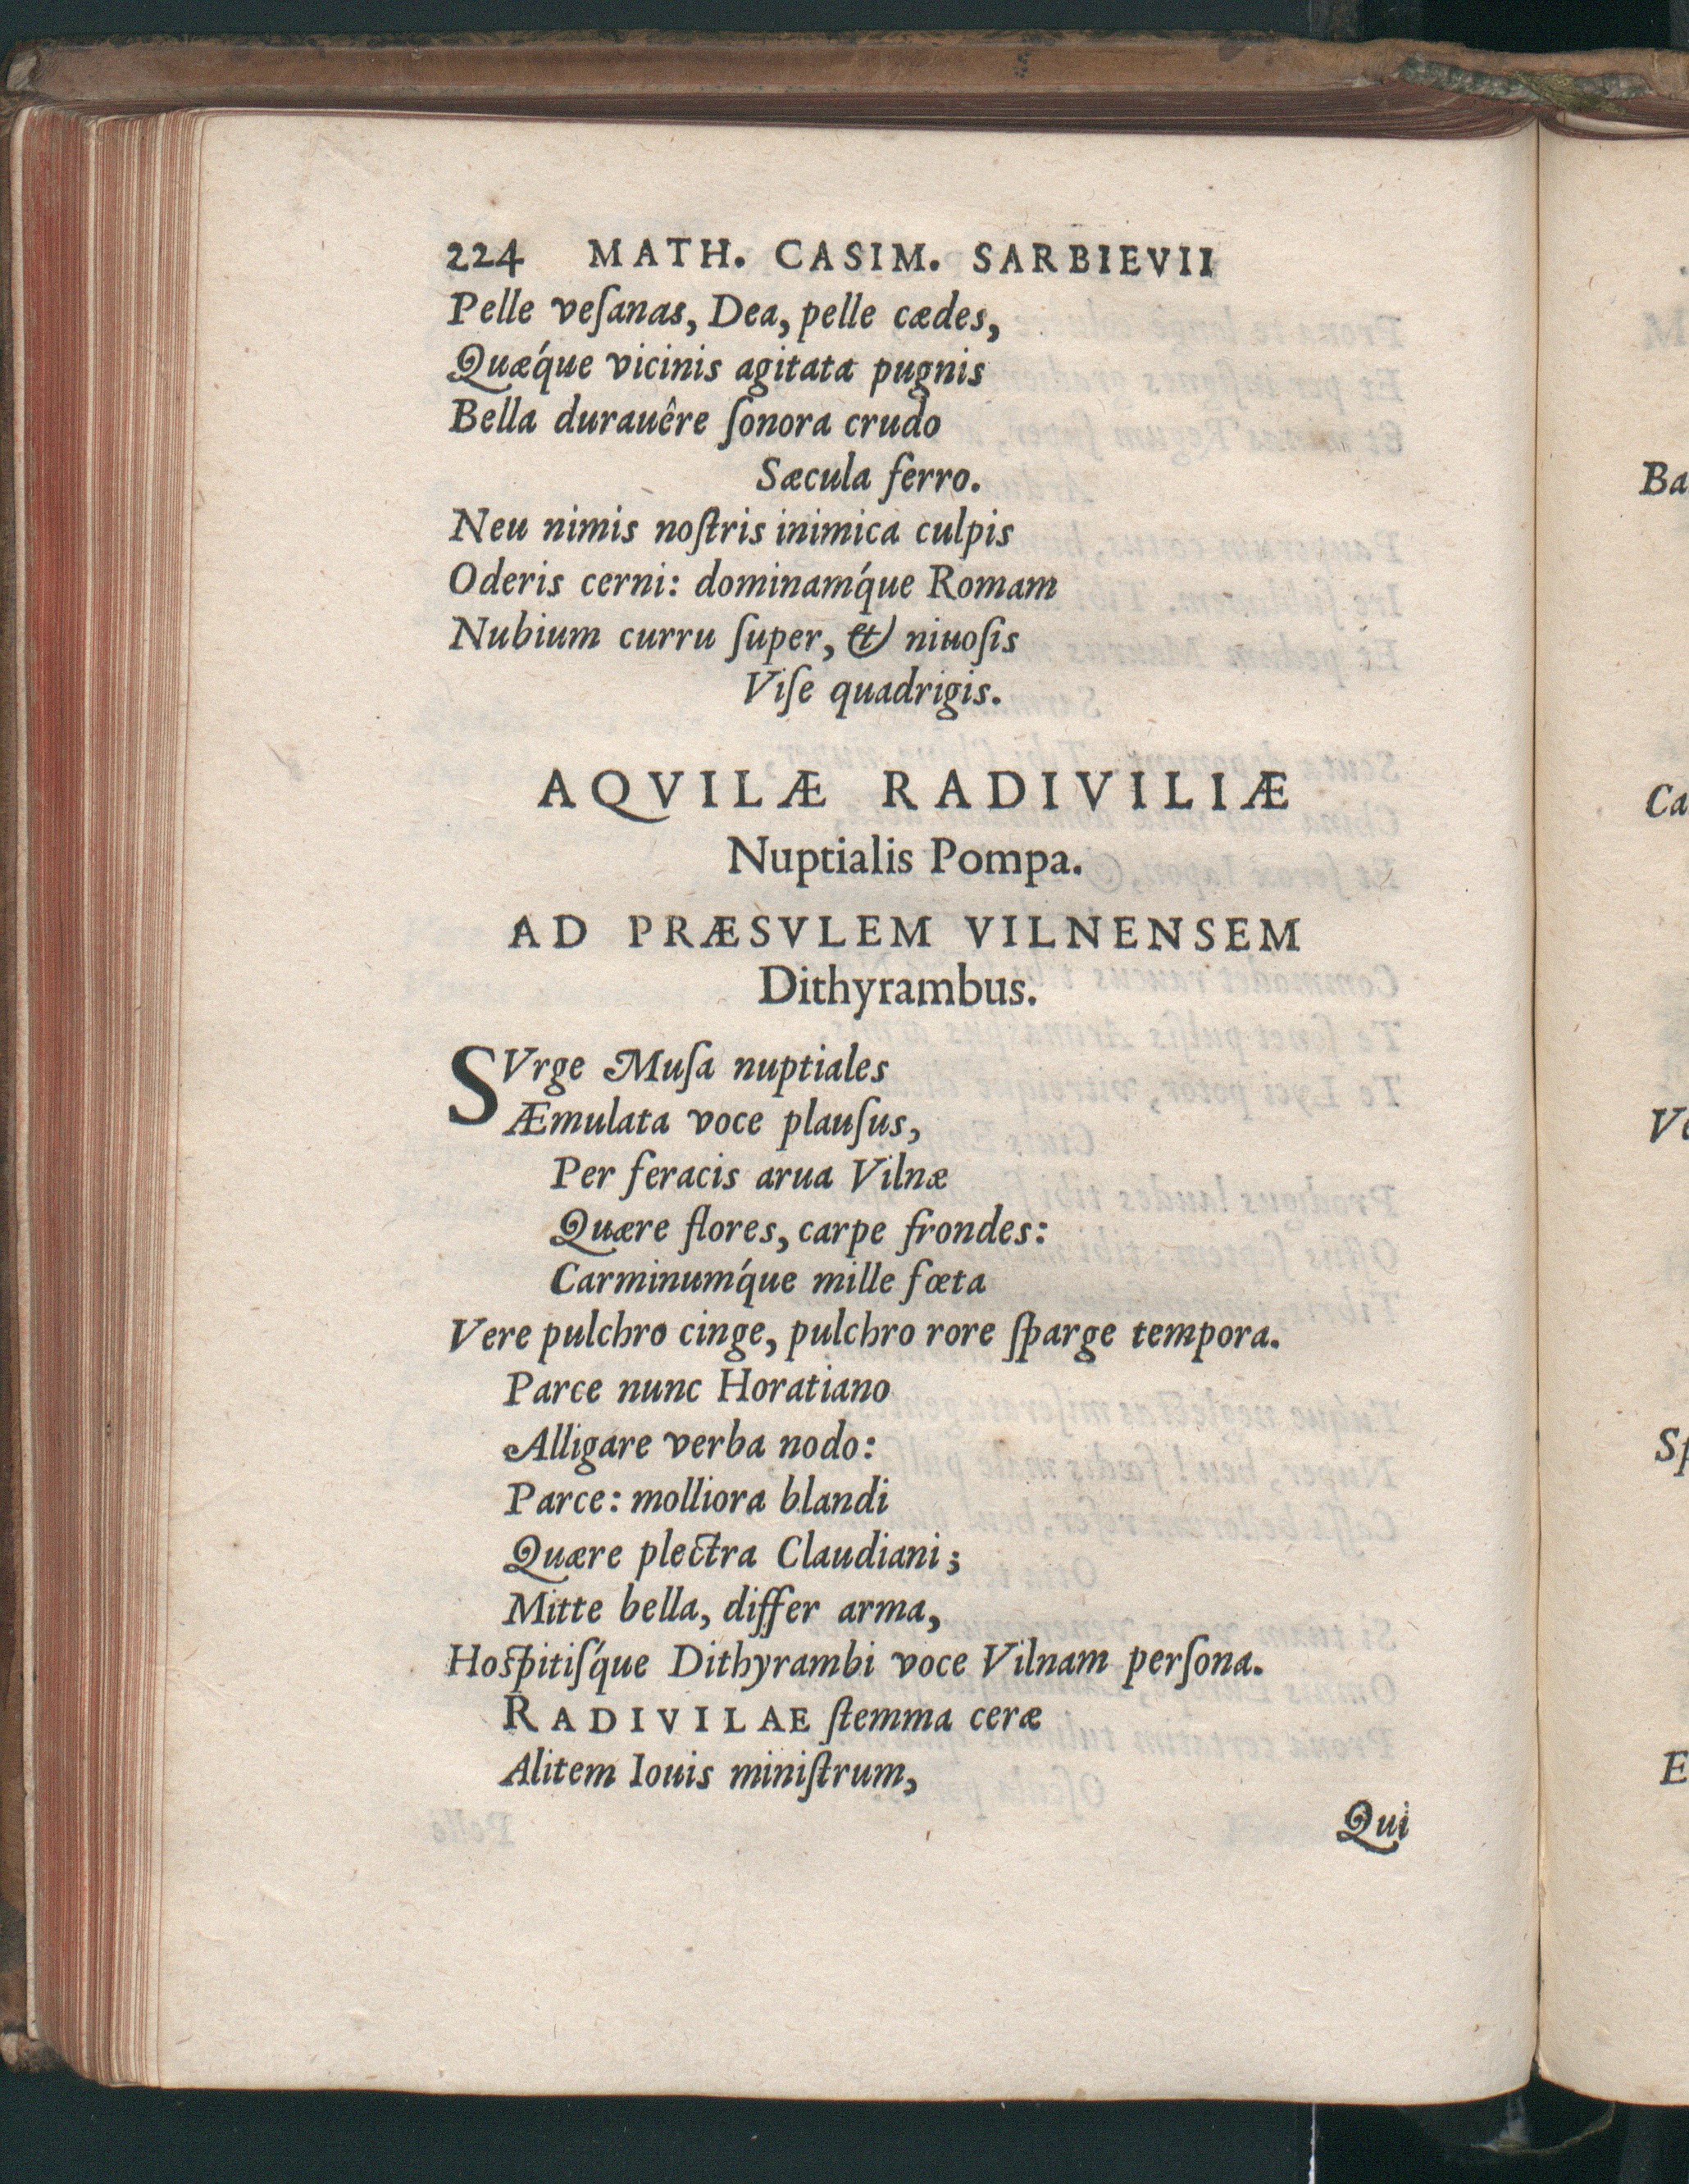 224 MATH. CASIM. SARBIEVII
Pelle veſanas, Dea, pelle cædes,
Quǽque vicinis agitata pugnis
Bella durauêre ſonora crudo
Sæcula ferro.
Neu nimis noſtris inimica culpis
Oderis cerni: dominamq́ue Romam
Nubium curru ſuper, & niuoſis
Viſe quadrigis.
AQVILÆ RADIVILIÆ
Nuptialis Pompa.
AD PRÆSVLEM VILNENSEM
Dithyrambus.
SVrge Muſa nuptiales
Æmulata voce plauſus,
Per feracis arua Vilnæ
Quære flores, carpe frondes:
Carminumq́ue mille fœta
Vere pulchro cinge, pulchro rore ſparge tempora.
Parce nunc Horatiano
Alligare verba nodo:
Parce: molliora blandi
Quære plectra Claudiani;
Mitte bella, differ arma,
Hoſpitiſq́ue Dithyrambi voce Vilnam perſona.
RADIVILAE ſtemma ceræ
Alitem Iouis miniſtrum,
Qui
Ba
Ca
Ve
Sp
E